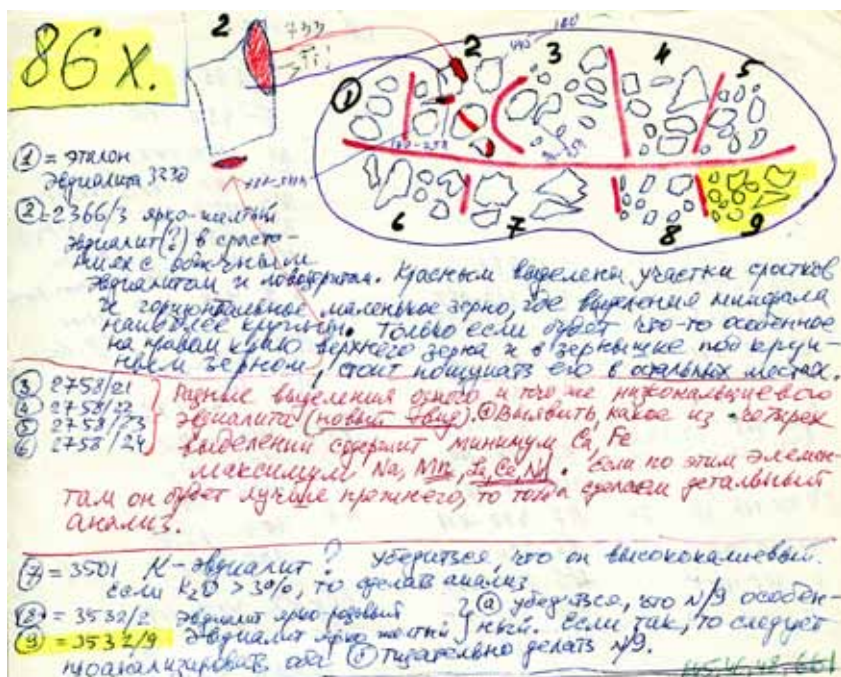 86 х.
2
733
2
3
4
5
1
6
7
8
9
① = эталон
Эвдиалита 3230
② = 2366/3 ярко-желтый
эвдиалит (?) в сраста-
ниях с обычным
эвдиалитом и ловозеритом. Красным выделены участки сростков
и горизонтальное маленькое зерно, где выделения минерала
наиболее крупны. Только если будет что-то особенное
на правом краю верхнего зерна и в зернышке под круп-
ным зерном, стоит пощупать его в остальных местах.
③ 2758/21
④ 2758/22
⑤ 2758/23
⑥ 2758/24
Разные выделения одного и того же низкокальциевого
эвдиалита (новый вид). ⓐ Выявить, какое из четырех
выделений содержит минимум Ca, Fe
максимум Na, Mn, La, Ce, Nd. Если по этим элемен-
там он будет лучше прежнего, то тогда сделаем детальный
анализ.
⑦ = 3501 К-эвдиалит? Убедиться, что он высококалиевый.
Если K2O > 3%, то сделать анализ
⑧ = 3532/2 Эвдиалит ярко-розовый
⑨ = 3532/9 Эвдиалит ярко желтый
ⓐ убедиться, что N/9 особен-
ный. Если так, то следует
проанализировать оба тщательно делать N/9.